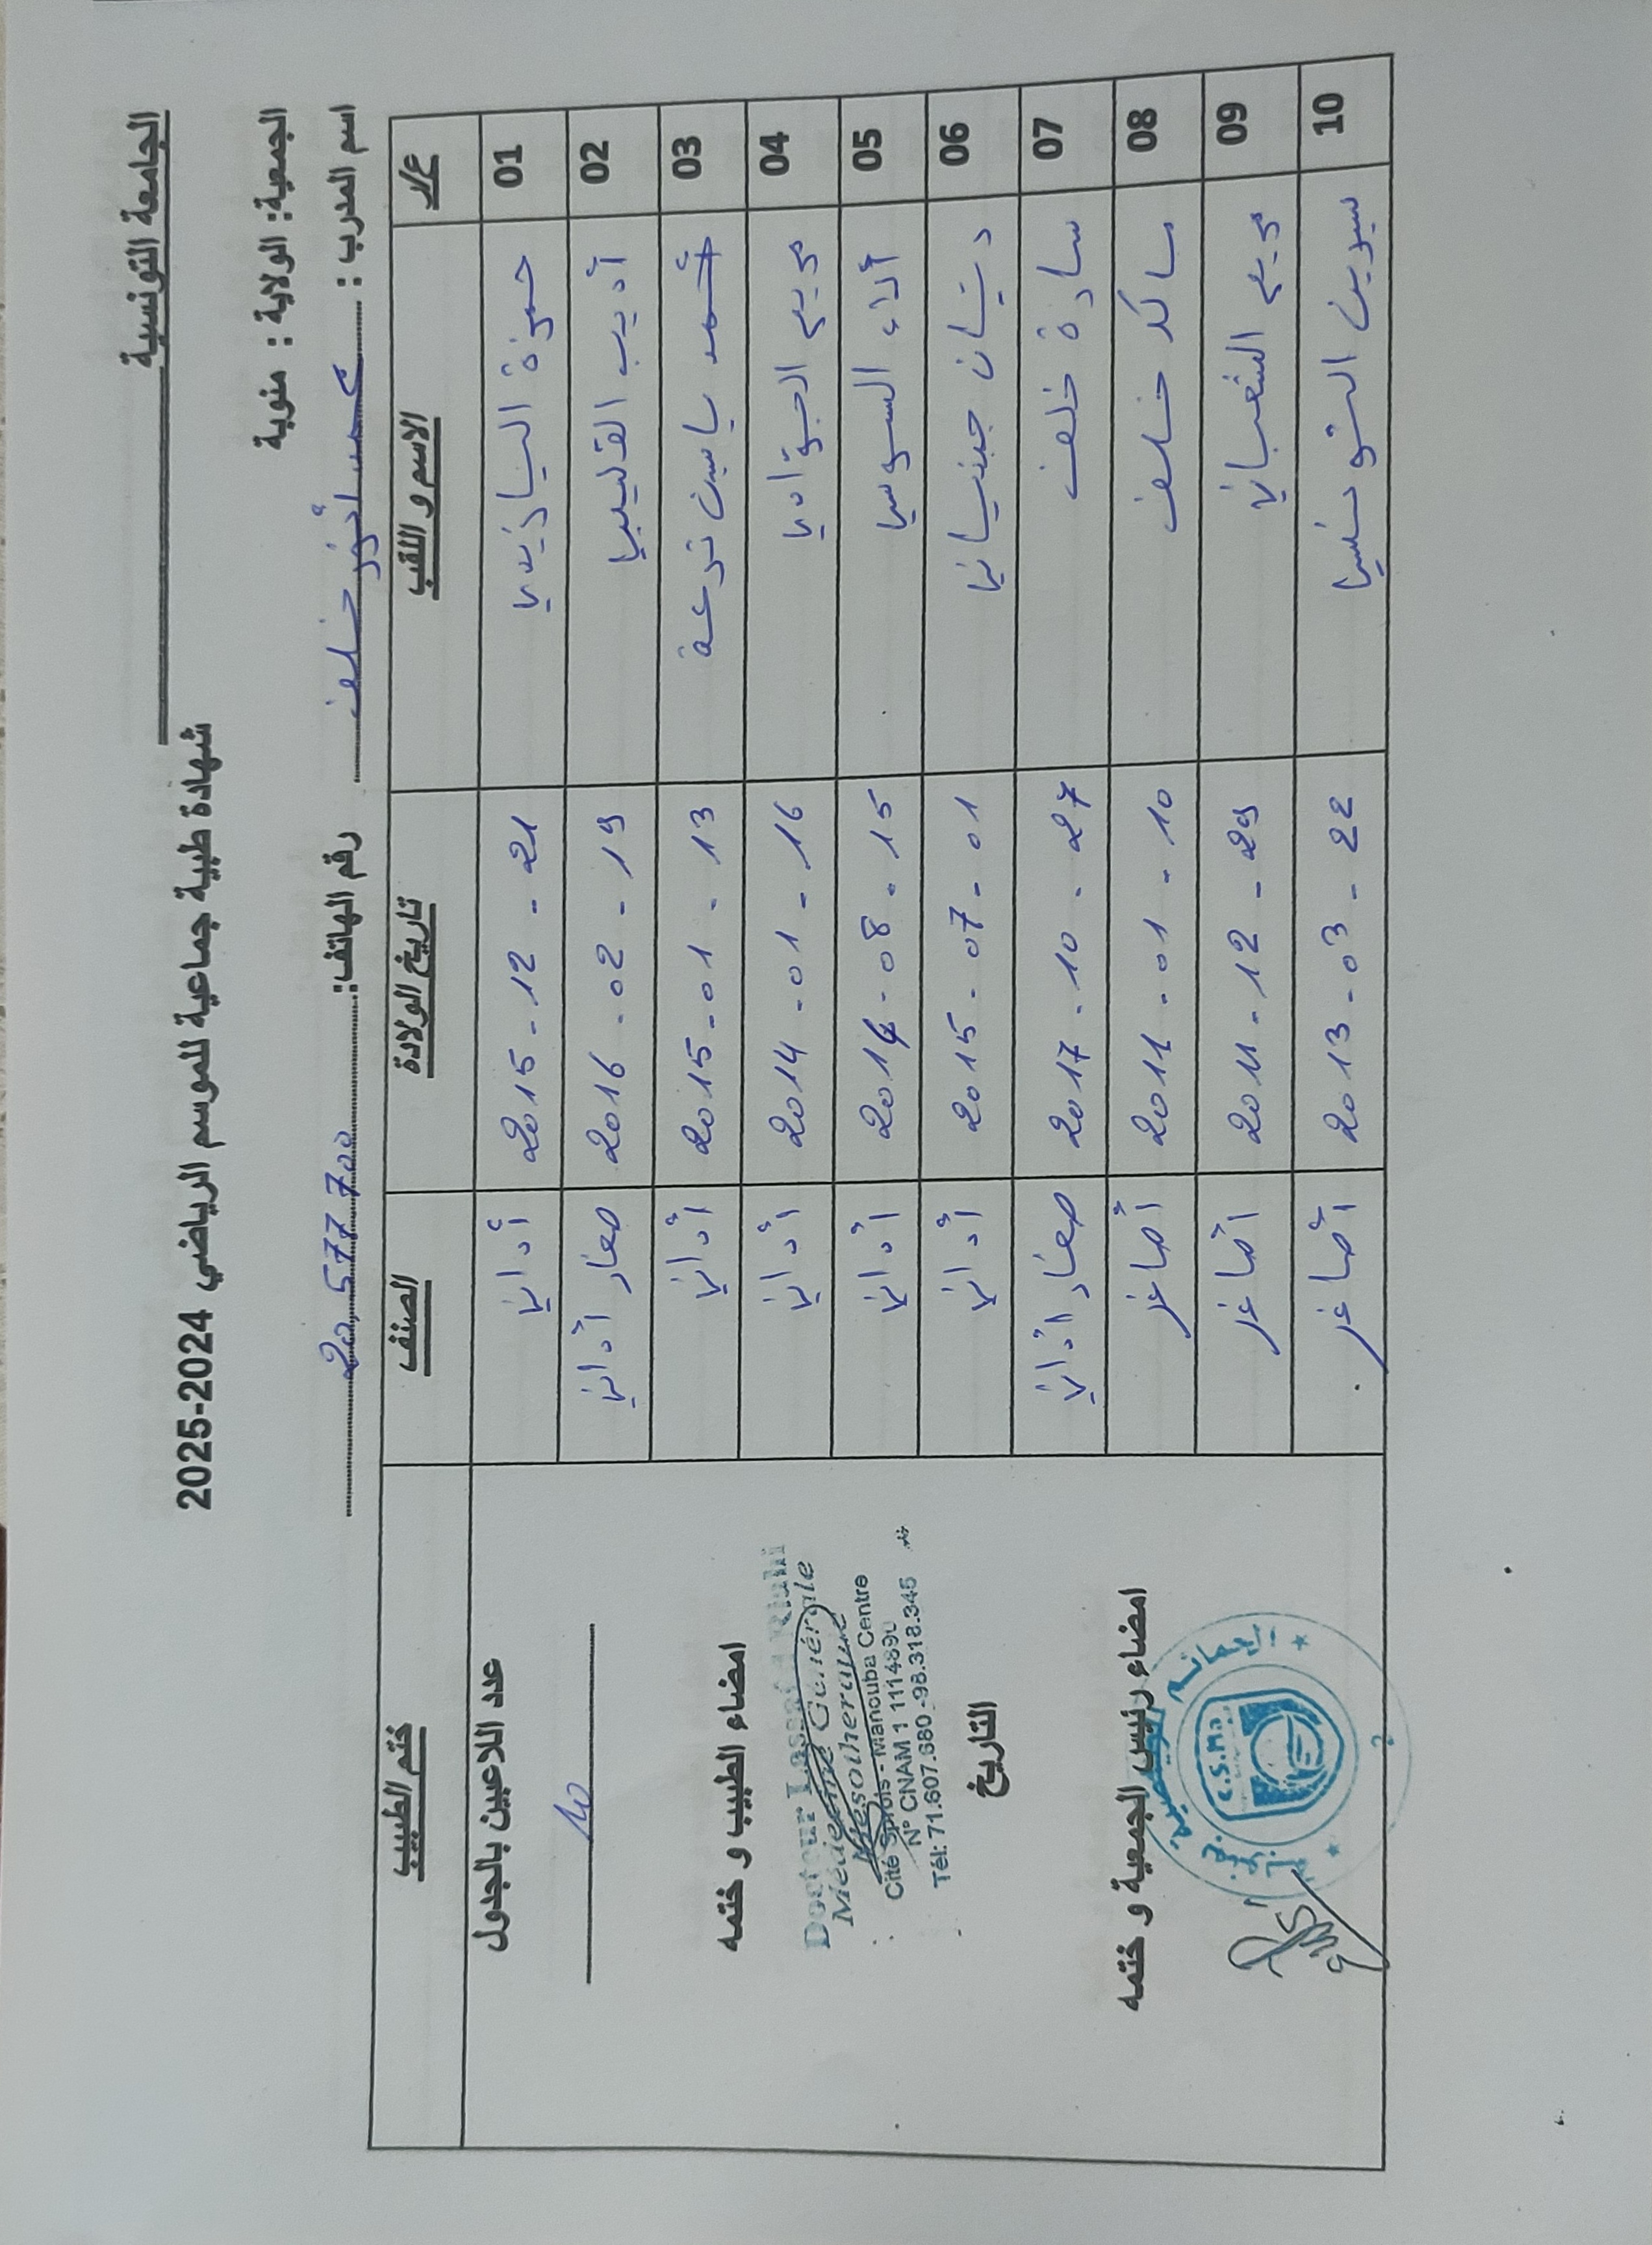 الجامعة التونسية
شهادة طبية جماعية للموسم الرياضي 2024-2025
الجمعية: الولاية : منوبة
اسم المدرب : محمد أنور خلف رقم الهاتف: 20.577.700
ع/ر الاسم و اللقب تاريخ الولادة الصنف ختم الطبيب
01 حمزة اليازيدي 2015-12-21 أداني
02 أديب القليبي 2016-02-19 صغار أداني
03 أحمد ياسين ترعة 2015-01-13 أداني
04 مريم الجوادي 2014-01-16 أداني
05 ألاء السوسي 2014-08-15 أداني
06 جينياني 2015-07-01 أداني
07 سادة خلف 2017-10-27 صغار أداني
08 خلف 2011-01-10 أصاغر
09 مريم الشعباني 2011-12-29 أصاغر
10 سيرين التونسي 2013-03-22 أصاغر
عدد اللاعبين بالجدول
10
امضاء الطبيب و ختمه
Docteur Lassad
Médecine Générale
Mésothérapie
Cité Sprols - Manouba Centre
N° CNAM 1 111489
Tél: 71.607.680 -98.318.345
التاريخ
امضاء رئيس الجمعية و ختمه
C.S.M.